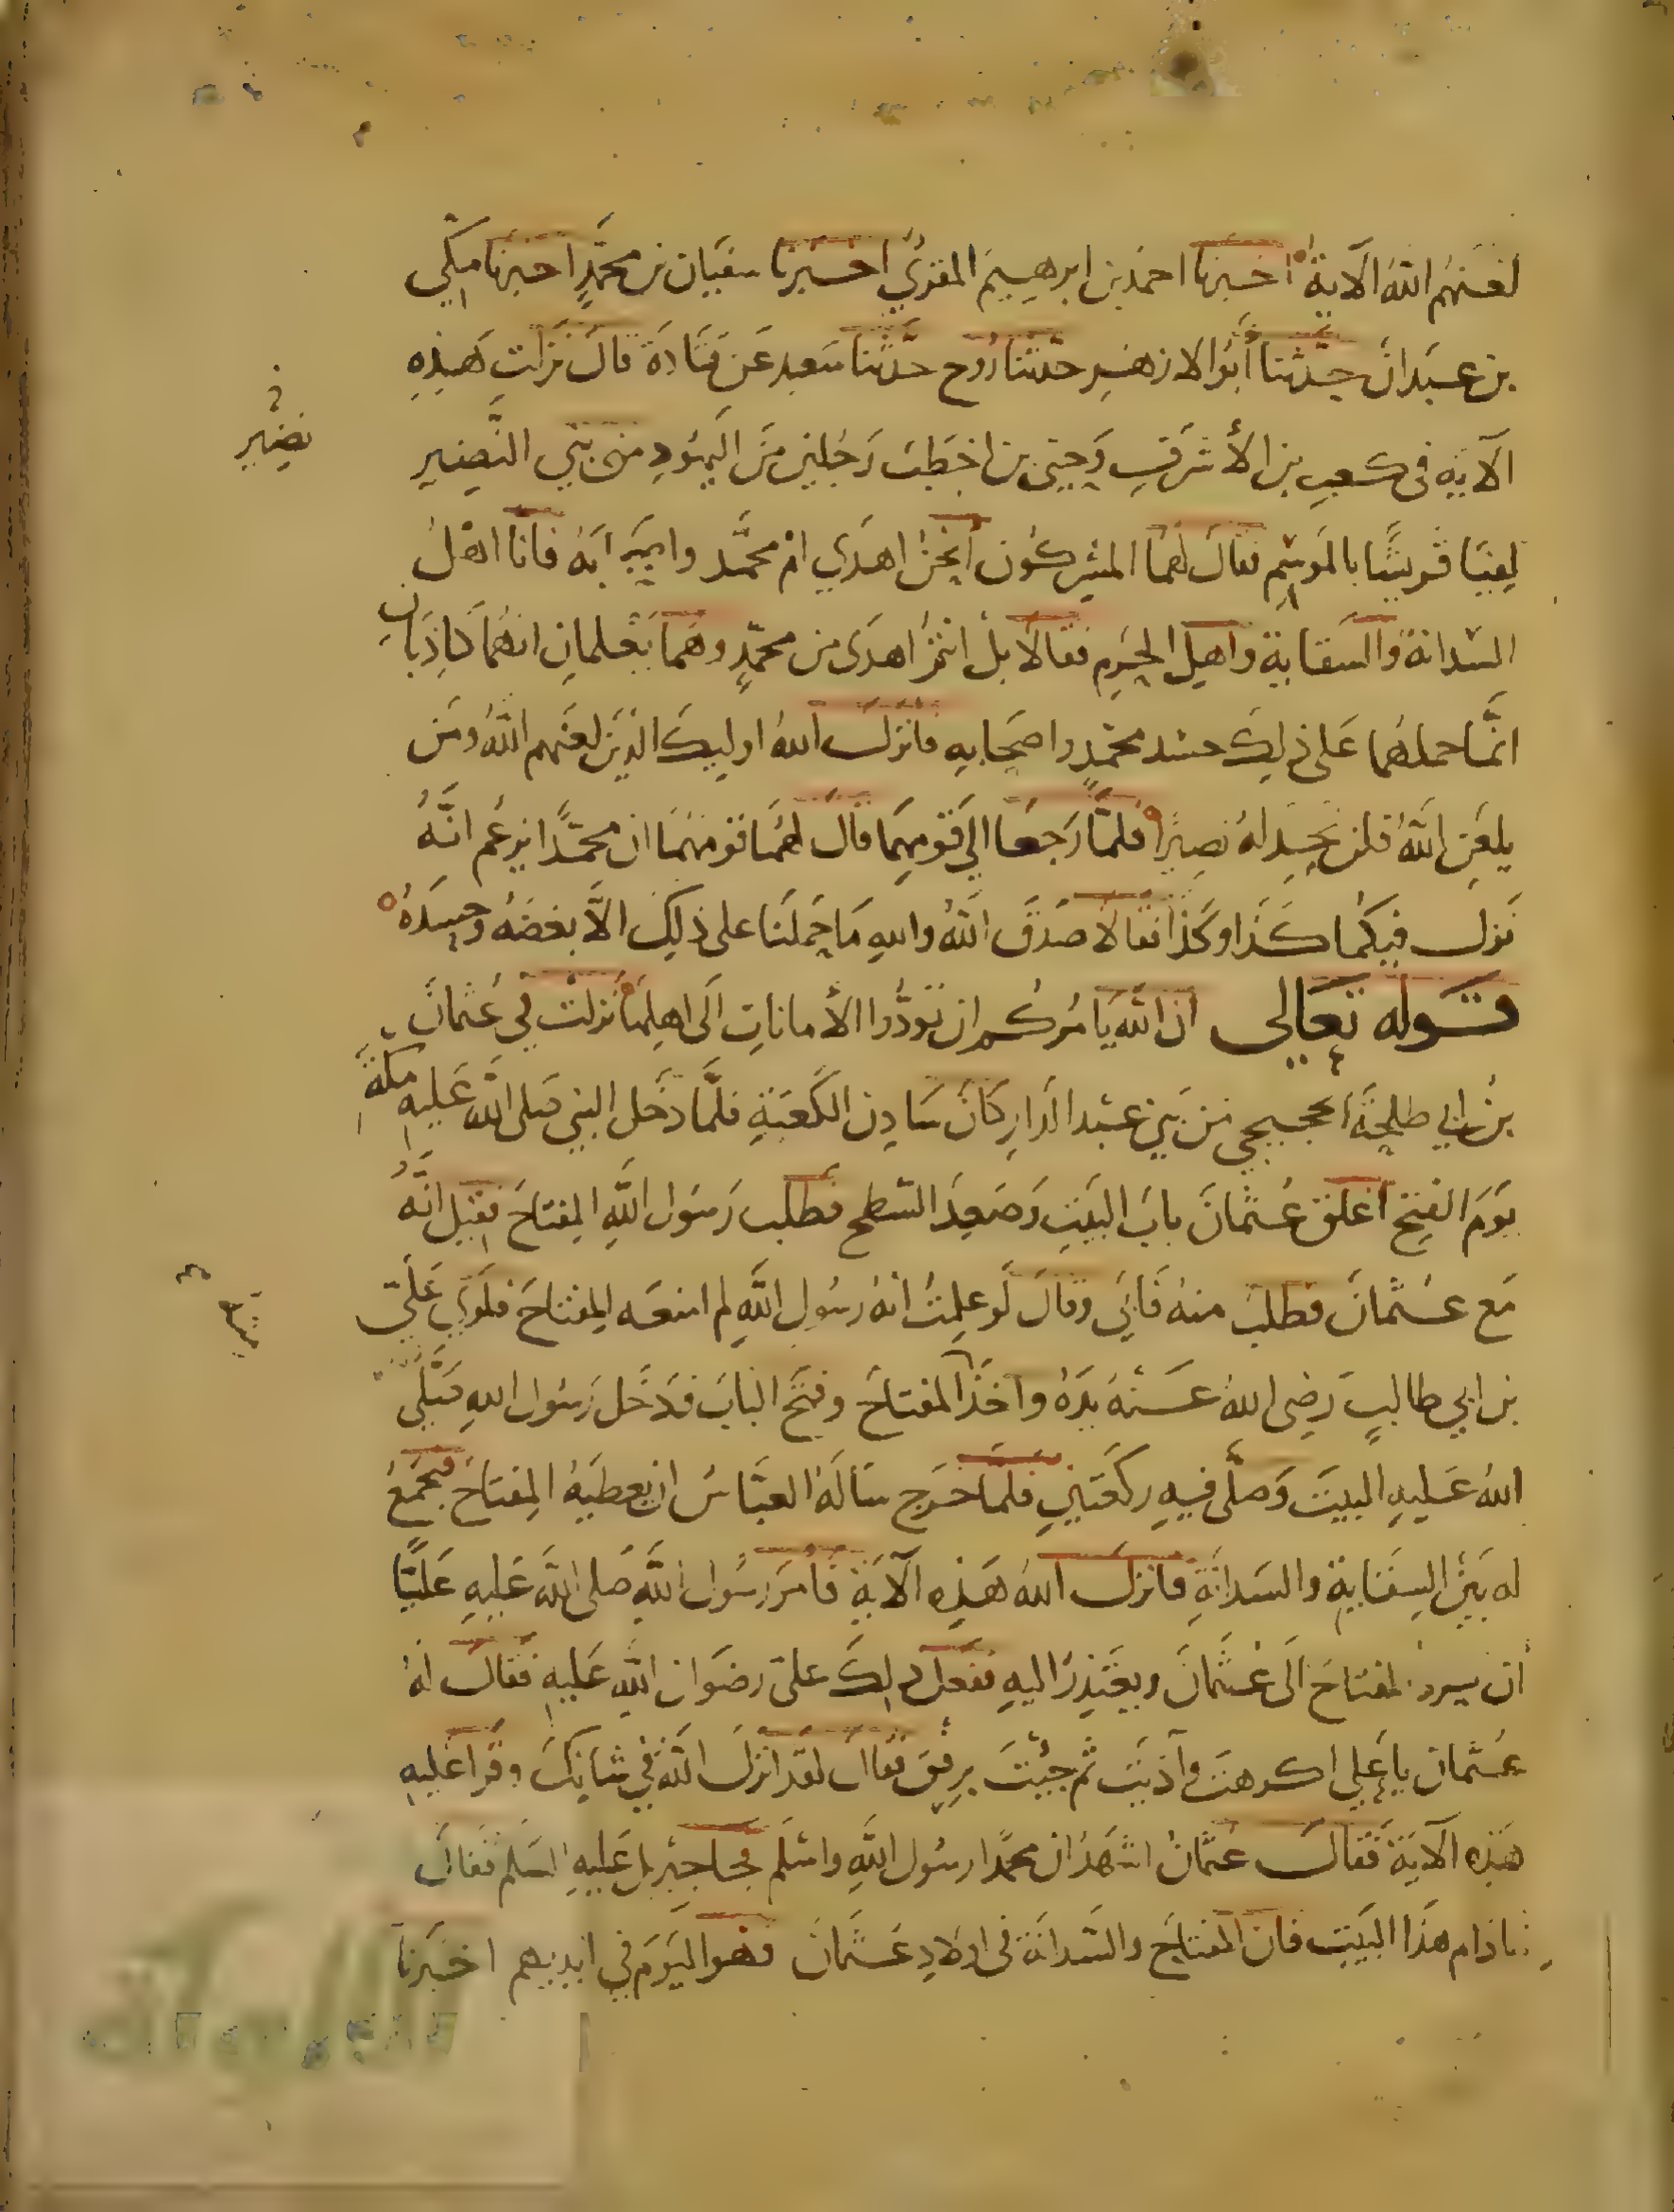 لعنهم الله الآية اخبرنا احمد بن ابرهيم المقري اخبرنا سفيان بن محمد اخبرنا مكي
بن عبدان حدثنا أبو الازهر حدثنا روح حدثنا سعيد عن قتادة قال نزلت هذه
الآية في كعب بن الأشرف وحيي بن اخطب رجلين من اليهود من بني النضير
نضير
لقيا قريشا بالموسم فقال لهما المشركون انحن اهدي ام محمد واصحابه فانا اهل
السدانة والسقاية واهل الحرم فقالا بل انتم اهدى من محمد وهما يعلمان انهما كاذبان
انما حملهما على ذلك حسد محمد واصحابه فانزل الله اوليك الذين لعنهم الله ومن
يلعن الله فلن تجد له نصيرا فلما رجعا الي قومهما قال لهما قومهما ان محمدا يزعم انه
نزل فيكما كذا وكذا فقالا صدق الله والله ما حملنا على ذلك الا بغضه وحسده
قوله تعالى ان الله يامركم ان تؤدوا الأمانات الى اهلها نزلت في عثمان
بن ابي طلحة الحجبي من بني عبد الدار كان سادن الكعبة فلما دخل النبي صلى الله عليه مكة
يوم الفتح اغلق عثمان باب البيت وصعد السطح فطلب رسول الله المفتاح فقيل انه
مع عثمان فطلب منه فابي وقال لو علمت انه رسول الله لم امنعه المفتاح فلوي علي
بن ابي طالب رضي الله عنه يده واخذ المفتاح وفتح الباب فدخل رسول الله صلى
الله عليه البيت وصلى فيه ركعتين فلما خرج ساله العباس ان يعطيه المفتاح فيجمع
له بين السقاية والسدانة فانزل الله هذه الآية فامر رسول الله صلى الله عليه عليا
أن يرد المفتاح الى عثمان ويعتذر اليه ففعل ذلك على رضوان الله عليه فقال له
عثمان يا علي اكرهت وآذيت ثم جئت برفق فقال لقد انزل الله في شانك وقرا عليه
هذه الآية فقال عثمان اشهد ان محمدا رسول الله واسلم فجا جبريل عليه السلم فقال
ما دام هذا البيت فان المفتاح والسدانة في اولاد عثمان فهو اليوم في ايديهم اخبرنا